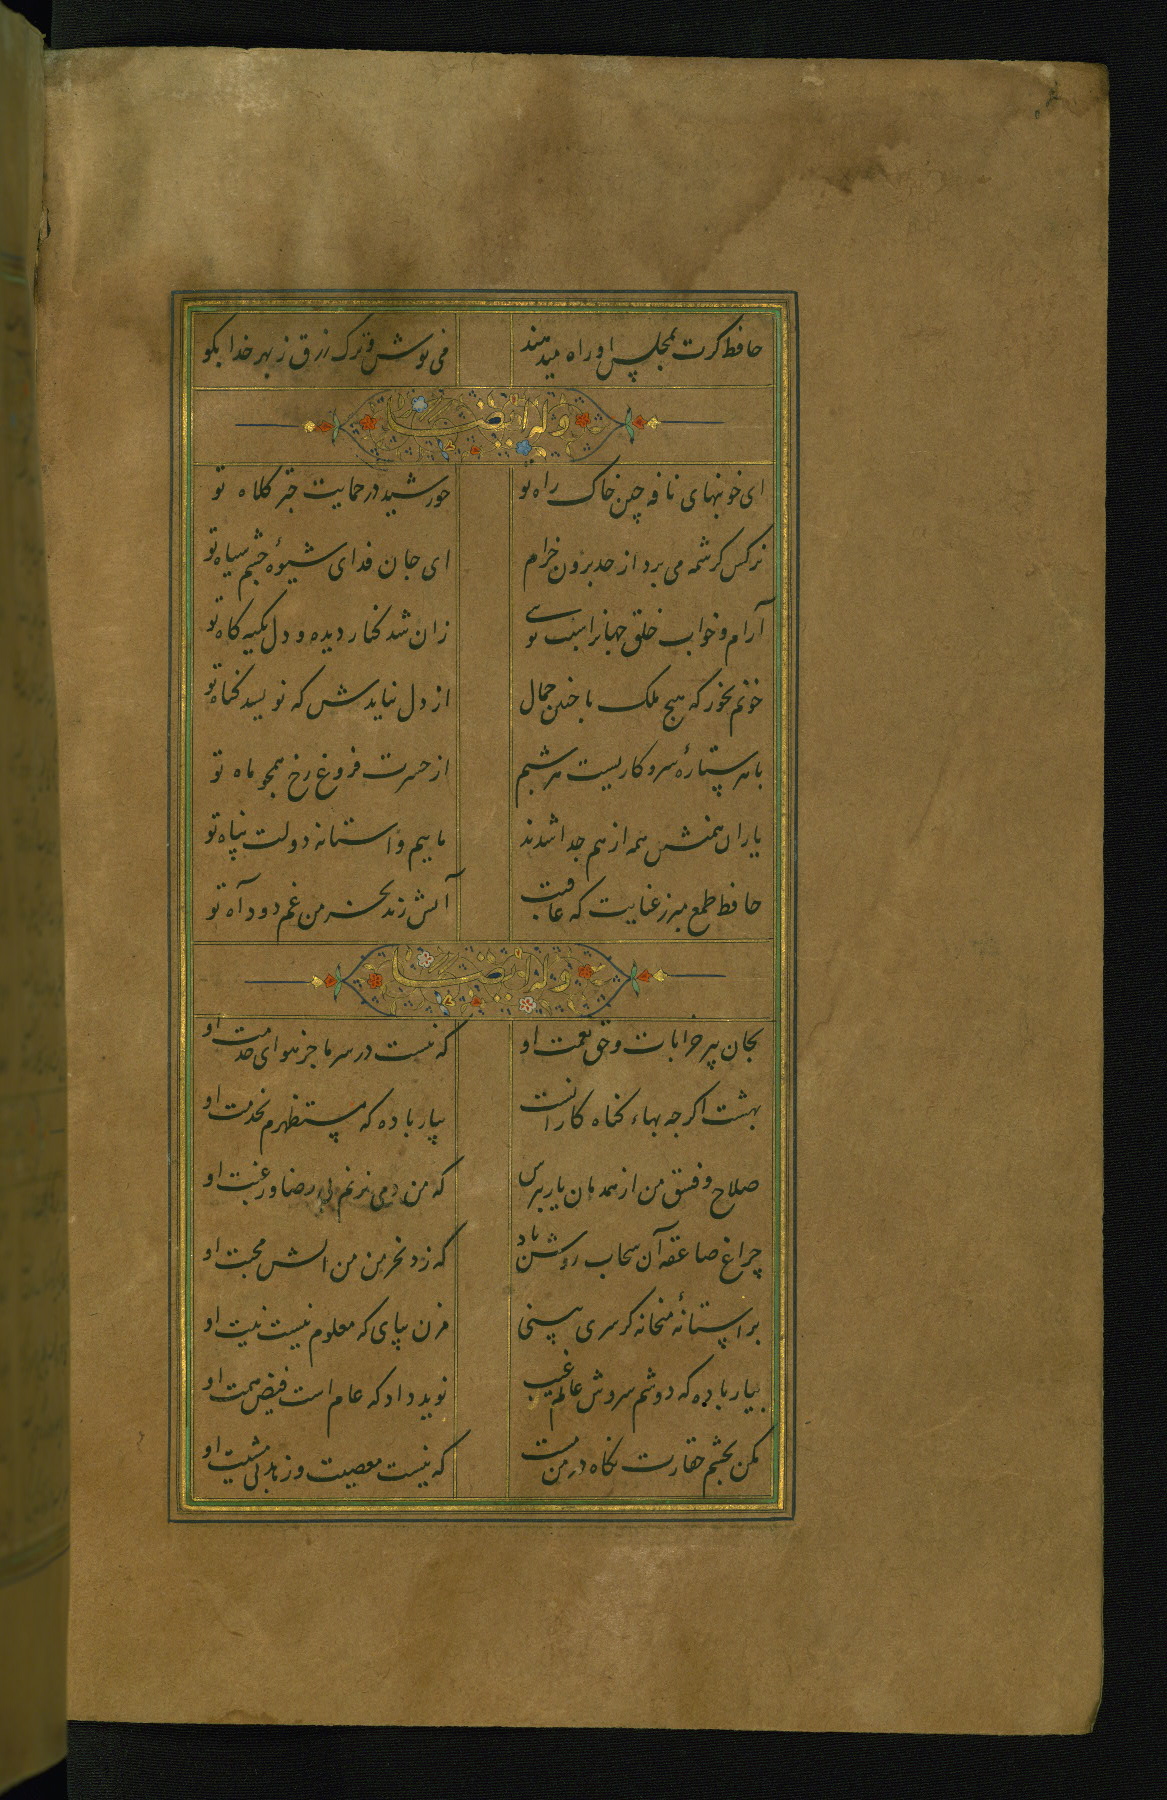 حافظ کرت بمجلس او راه میدهند می نوش و ترک زرق ز بهر خدا بکو
وله ایضا
ای خونبهای نافه چین خاک راه تو خورشید در حمایت چتر کلاه تو
نرکس کرشمه می برد از حد برون خرام ای جان فدای شیوهٔ چشم سیاه تو
آرام و خواب خلق جهانرا سبب توی زان شد کنار دیده و دل تکیه کاه تو
خونم بخور که هیچ ملک با چنین جمال از دل نیایدش که نویسد کناه تو
با هر ستارهٔ سر و کاریست هر شبم از حسرت فروغ رخ همچو ماه تو
یاران همنشین همه از هم جدا شدند ماییم و استانه دولت پناه تو
حافظ طمع مبر ز عنایت که عاقبت آتش زند بخرمن غم دود آه تو
وله ایضا
بجان پیر خرابات و حق نعمت او که نیست در سر ما جز هوای خدمت او
بهشت اکر جه بهاء کناه کارانست بیار باده که مستظهرم بخدمت او
صلاح و فسق من از همدمان یار برس که من دمی نزنم بی رضا و رغبت او
چراغ صاعقه آن سحاب روشن باد که زد بخرمن من اتش محبت او
بر استانهٔ میخانه کر سری بینی مزن بپای که معلوم نیست نیت او
بیار باده که دوشم سروش عالم غیب نوید داد که عام است فیض همت او
مکن بچشم حقارت نکاه در من مست که نیست معصیت و زهد بی مشیت او